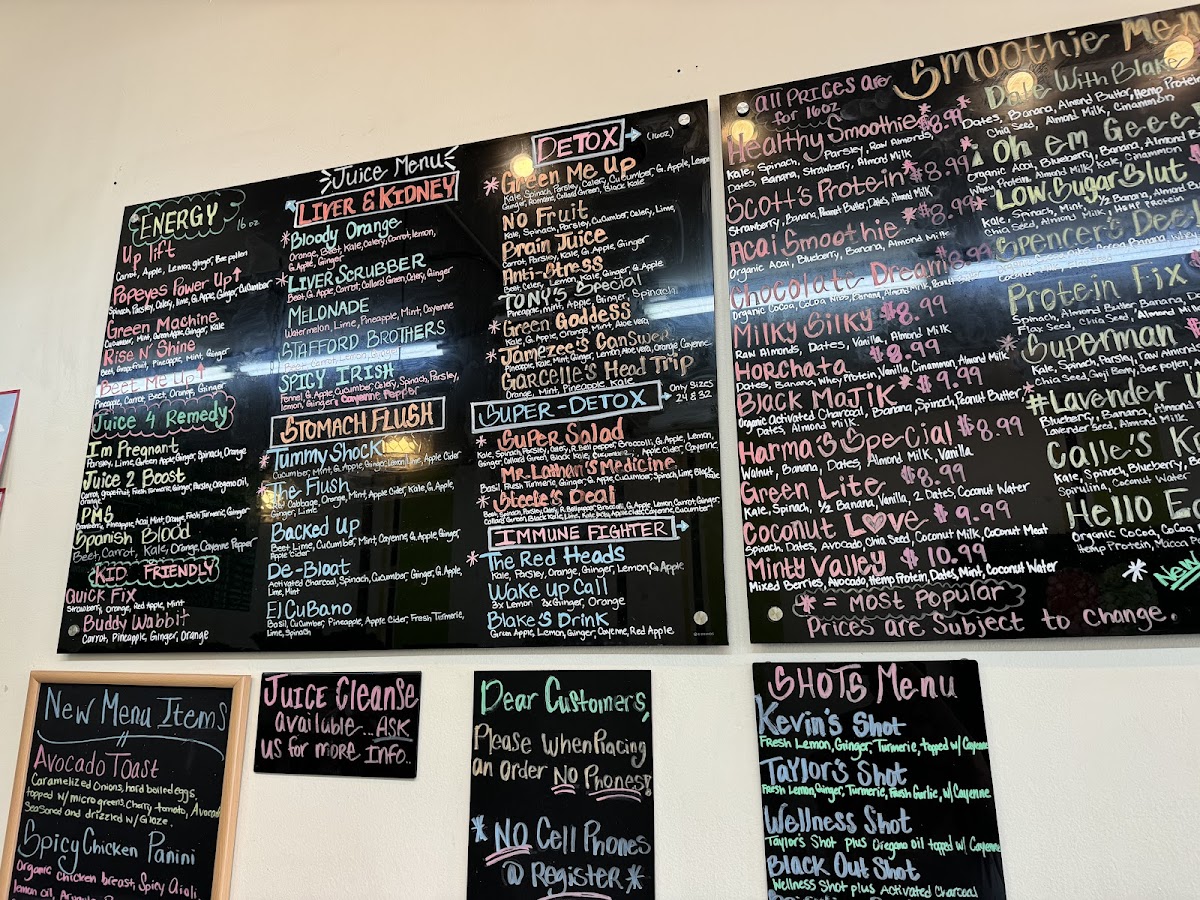 Juice Menu
ENERGY
16 oz
Up lift
Carrot, Apple, Lemon, ginger, Bee pollen
Popeyes Power Up↑
Spinach, Parsley, Celery, Lime, G. Apple, Ginger, Cucumber
Green Machine
Cucumber, Mint, Green Apple, Ginger, Kale
Rise N' Shine
Beet, Grapefruit, Pineapple, Mint, Ginger
Beet Me Up↑
Pineapple, Carrot, Beet, Orange, Ginger
Juice 4 Remedy
I'm Pregnant
Parsley, Lime, Green Apple, Ginger, Spinach, Orange
Juice 2 Boost
Carrot, Grapefruit, Fresh Turmeric, Ginger, Parsley, Oregano Oil,
Orange
PMS
Cranberry, Pineapple, Acai, Mint, Orange, Fresh Turmeric, Ginger
Spanish Blood
Beet, Carrot, Kale, Orange, Cayenne Pepper
KID FRIENDLY
Quick Fix
Strawberry, Orange, Red Apple, Mint
Buddy Wabbit
Carrot, Pineapple, Ginger, Orange
LIVER & KIDNEY
*Bloody Orange
Orange, Beet, Kale, Celery, Carrot, lemon,
G. Apple, Ginger
*LIVER SCRUBBER
Beet, G. Apple, Carrot, Collard Green, Celery, Ginger
MELONADE
Watermelon, Lime, Pineapple, Mint, Cayenne
STAFFORD BROTHERS
SPICY IRISH
Fennel, G. Apple, Cucumber, Celery, Spinach, Parsley,
lemon, Ginger, Cayenne Pepper
STOMACH FLUSH
*Tummy Shock
Cucumber, Mint, G. Apple, Ginger, Lemon, Lime, Apple Cider
The Flush
Red Cabbage, Orange, Mint, Apple Cider, Kale, G. Apple,
Ginger, Lime
Backed Up
Beet, Lime, Cucumber, Mint, Cayenne, G. Apple, Ginger,
Apple Cider
De-Bloat
Activated Charcoal, Spinach, Cucumber, Ginger, G. Apple,
Lime, Mint
El Cubano
Basil, Cucumber, Pineapple, Apple Cider, Fresh Turmeric,
Lime, Spinach
DETOX → (16oz)
*Green Me Up
Kale, Spinach, Parsley, Celery, Cucumber, G. Apple, Lemon
Ginger, Romaine, Collard Green, Black Kale
No Fruit
Kale, Spinach, Parsley, Cucumber, Celery, Lime,
Brain Juice
Carrot, Parsley, Kale, G. Apple, Ginger
Anti-Stress
Beet, Celery, Lemon, Kale, Ginger, G. Apple
Tony's Special
Pineapple, Mint, Apple, Ginger, Spinach
*Green Goddess
Kale, G. Apple, Orange, Mint, Aloe Vera,
*Jamezee's CanSweat
Pineapple, Kale, Mint, Ginger, Lemon, Aloe vera, Orange, Cayenne
Garcelle's Head Trip
Orange, Mint, Pineapple, Kale
SUPER-DETOX → Only Sizes
24 & 32
*Super Salad
Kale, Spinach, Parsley, Celery, R. Bell pepper, Broccoli, G. Apple, Lemon,
Ginger, Collard Green, Black Kale, Cucumber, Apple Cider, Cayenne,
Mr. Lathan's Medicine
Basil, Fresh Turmeric, Ginger, G. Apple, Cucumber, Spinach, Lime, Black Kale
*Steele's Deal
Beet, Spinach, Parsley, Celery, R. Bellpepper, Broccoli, G. Apple, Lemon, Carrot, Ginger,
Collard Green, Black Kale, Lime, Kale, Apple Cider, Cayenne, Cucumber
IMMUNE FIGHTER →
*The Red Heads
Kale, Parsley, Orange, Ginger, Lemon, G. Apple
Wake up Call
3x Lemon 2x Ginger, Orange
Blake's Drink
Green Apple, Lemon, Ginger, Cayenne, Red Apple
Smoothie Men
all PRICES are
for 16oz
Healthy Smoothie* $8.99
Kale, Spinach, Parsley, Raw Almonds,
Dates, Banana, Strawberry, Almond Milk
Scott's Protein* $8.99
Strawberry, Banana, Peanut Butter, Dates, Almond Milk
Acai Smoothie *$8.99
Organic Acai, Blueberry, Banana, Almond Milk
Chocolate Dream $8.99
Organic Cocoa, Cocoa Nibs, Banana, Almond Milk, Peanut
Milky Silky $8.99
Raw Almonds, Dates, Vanilla, Almond Milk
Horchata $8.99
Dates, Banana, Whey Protein, Vanilla, Cinnamon, Almond Milk
Black Majik* $9.99
Organic Activated Charcoal, Banana, Spinach, Peanut Butter,
Dates, Almond Milk
Harma's Special $8.99
Walnut, Banana, Dates, Almond Milk, Vanilla
Green Lite $8.99
Kale, Spinach, ½ Banana, Vanilla, 2 Dates, Coconut Water
Coconut Love $9.99
Spinach, Dates, Avocado, Chia Seed, Coconut Milk, Coconut Meat
Minty Valley $10.99
Mixed Berries, Avocado, Hemp Protein, Dates, Mint, Coconut Water
* = Most Popular
Prices are Subject to change.
Date With Blake
Dates, Banana, Almond Butter, Hemp Protein
Chia Seed, Almond Milk, Cinnamon
*oh em Geee
Organic Acai, Blueberry, Banana, Almond B
Whey Protein, Almond Milk, Kale, Cinnamon
*Low Sugar Slut
Kale, Spinach, Mint, ½ Banana, Almond B
Chia Seed, Almond Milk, Hemp Protein
Spencer's Dee
Protein Fix
Spinach, Almond Butter, Banana, D
Flax Seed, Chia Seed, Almond Milk
*Superman
Kale, Spinach, Parsley, raw Almonds
Chia Seed, Goji Berry, Bee pollen
#Lavender
Blueberry, Banana, Almond
Lavender Seed, Almond Milk
Calle's K
Kale, Spinach, Blueberry, Ba
Spirulina, Coconut Water
Hello E
Organic Cocoa, Co
Hemp Protein, Maca P
* New
New Menu Items
Avocado Toast
Caramelized Onions, hard boiled eggs,
topped w/ micro greens, Cherry tomato, Avocado
Seasoned and drizzled w/ Glaze.
Spicy Chicken Panini
Organic Chicken breast, Spicy Aioli,
lemon oil,
Juice Cleanse
available... ASK
us for more Info..
Dear Customers,
Please When Placing
an Order No Phones!
*NO Cell Phones
@ Register*
SHOTS Menu
Kevin's Shot
Fresh Lemon, Ginger, Turmeric, topped w/ Cayenne
Taylor's Shot
Fresh Lemon, Ginger, Turmeric, Fresh Garlic, w/ Cayenne
Wellness Shot
Taylor's Shot plus Oregano oil topped w/ Cayenne
Black Out Shot
Wellness Shot plus Activated Charcoal